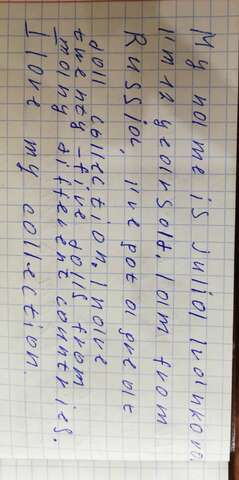 My name is Julia Ivankova.
I'm 12 years old. I am from
Russia, I've got a great
doll collection. I have
twenty-five dolls from
many different countries.
I love my collection.